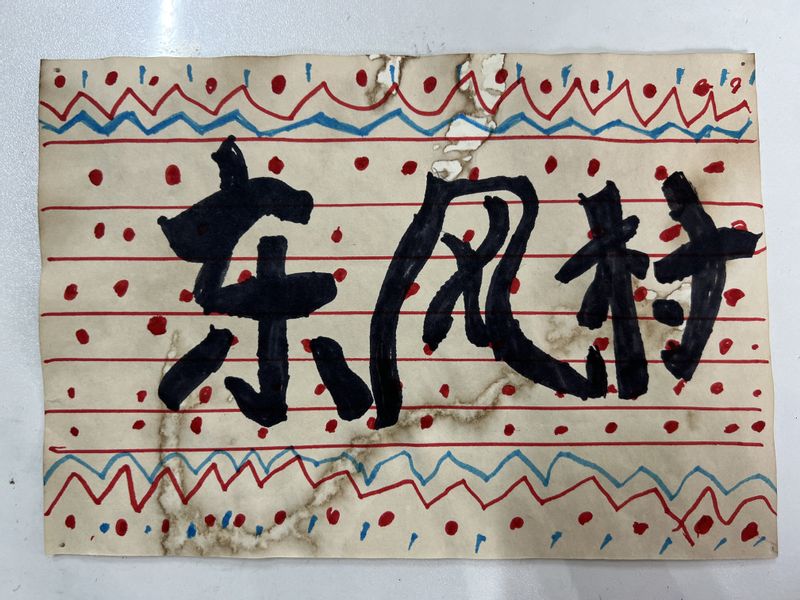 东风村